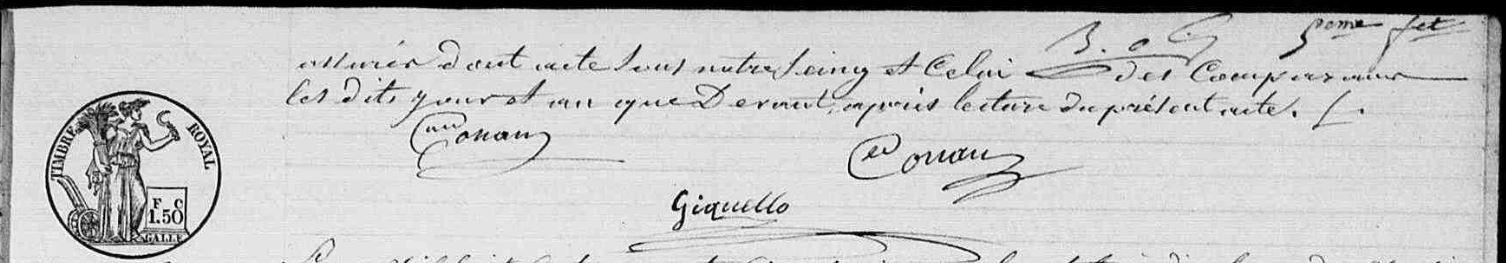 B. a C. 5eme fet
assurés dont acte sous notre seing et Celui des Comparants
les dits jour et an que Devant, après lecture du présent acte. /.
Conan
Conan
Giquello
TIMBRE ROYAL
F C
1.50
GALLE